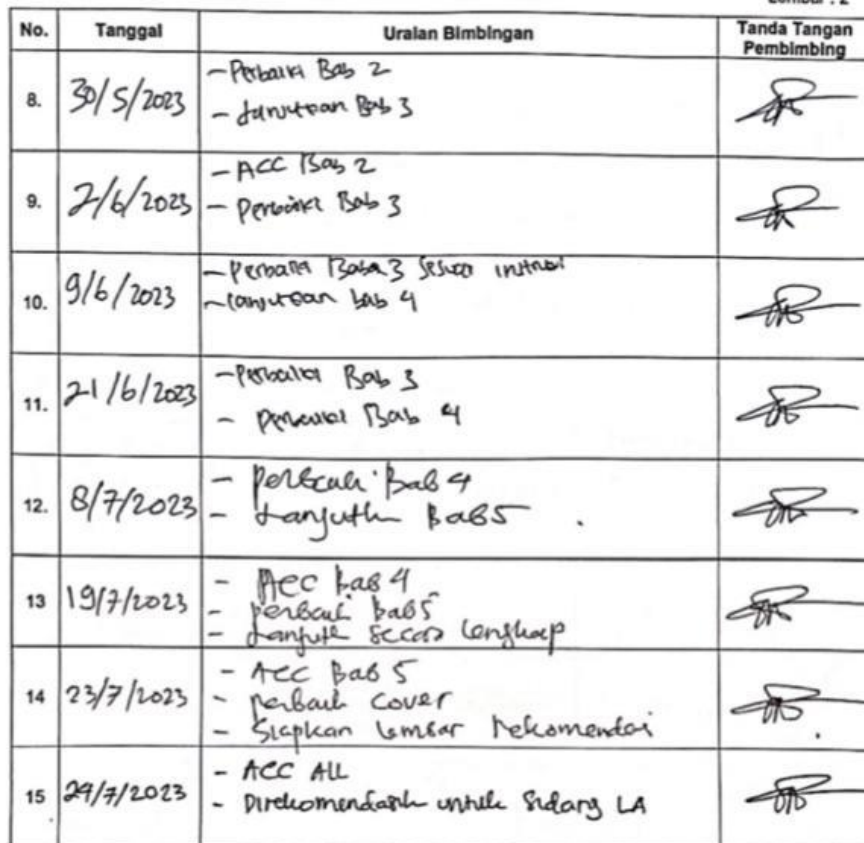 Lembar : 2
No. Tanggal Uraian Bimbingan Tanda Tangan
Pembimbing
8. 30/5/2023 - Perbaiki Bab 2
- Lanjutkan Bab 3
9. 2/6/2023 - ACC Bab 2
- Perbaiki Bab 3
10. 9/6/2023 - Perbaiki Bab 3 sesuai
- Lanjutkan bab 4
11. 21/6/2023 - Perbaiki Bab 3
- Perbaiki Bab 4
12. 8/7/2023 - Perbaiki Bab 4
- Lanjutk Bab 5
13 19/7/2023 - Acc Bab 4
- perbaiki bab 5
- Lanjutk secara lengkap
14 23/7/2023 - Acc Bab 5
- perbaiki cover
- Siapkan lembar rekomendasi
15 24/7/2023 - ACC ALL
- Direkomendasik untuk Sidang LA